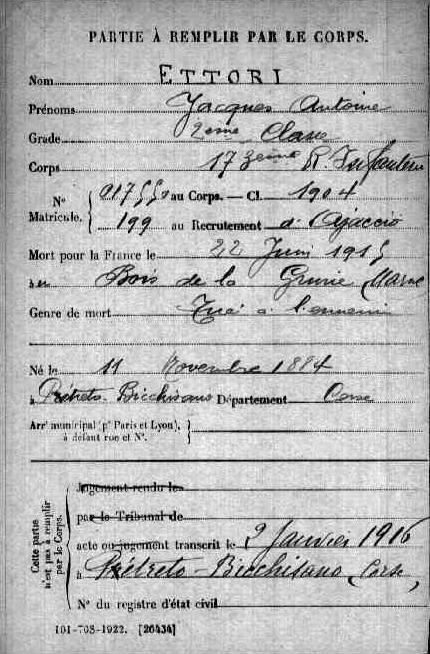 PARTIE À REMPLIR PAR LE CORPS.
Nom ETTORI
Prénoms Jacques Antoine
Grade 2eme Classe
Corps 173eme R. Infanterie
N° 01755 au Corps. — Cl. 1904
Matricule. 199 au Recrutement d'Ajaccio
Mort pour la France le 22 Juin 1915
à Bois de la Grurie (Marne
Genre de mort Tué à l'ennemi
Né le 11 Novembre 1884
à Pétreto-Bicchisano Département Corse
Arrᵗ municipal (pʳ Paris et Lyon),
à défaut rue et N°.
Cette partie
n'est pas à remplir
par le Corps.
Jugement rendu le
par le Tribunal de
acte ou jugement transcrit le 2 Janvier 1916
à Pétreto-Bicchisano (Corse)
N° du registre d'état civil
101-708-1922. [26434]